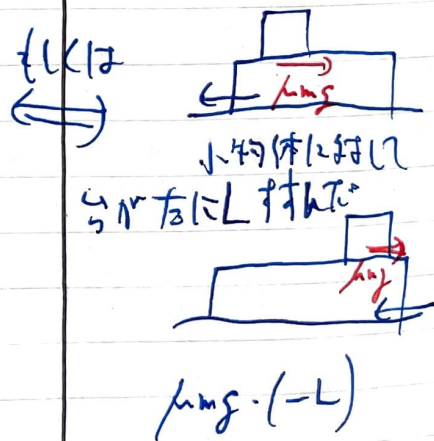 もしくは
μmg
小物体に対して
台が左にLすすんだ
μmg
μmg・(-L)